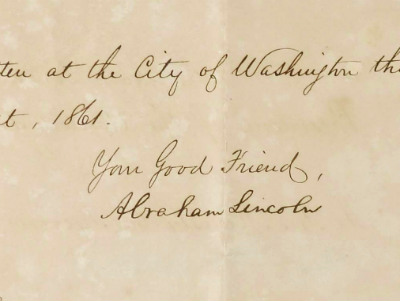 ten at the City of Washington th
t, 1861.
Your Good Friend,
Abraham Lincoln